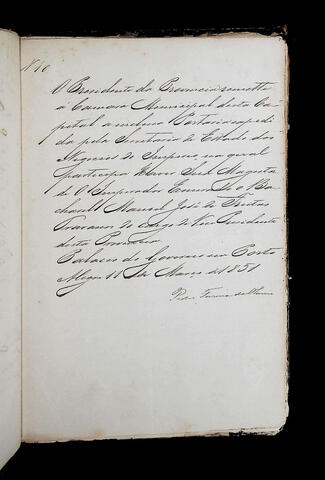 Nº 40
O Presidente da Provincia remette
á Camara Municipal desta Ca-
pital a inclusa Portaria expedi-
da pela Secretaria de Estado dos
Negocios do Imperio, na qual
participa Haver Sua Magesta-
de O Imperador Exonerado o Ba-
charel Manoel José de Freitas
Travassos do cargo de Vice Presidente
desta Provincia
Palacio do Governo em Porto
Alegre 11 de Março de 1851